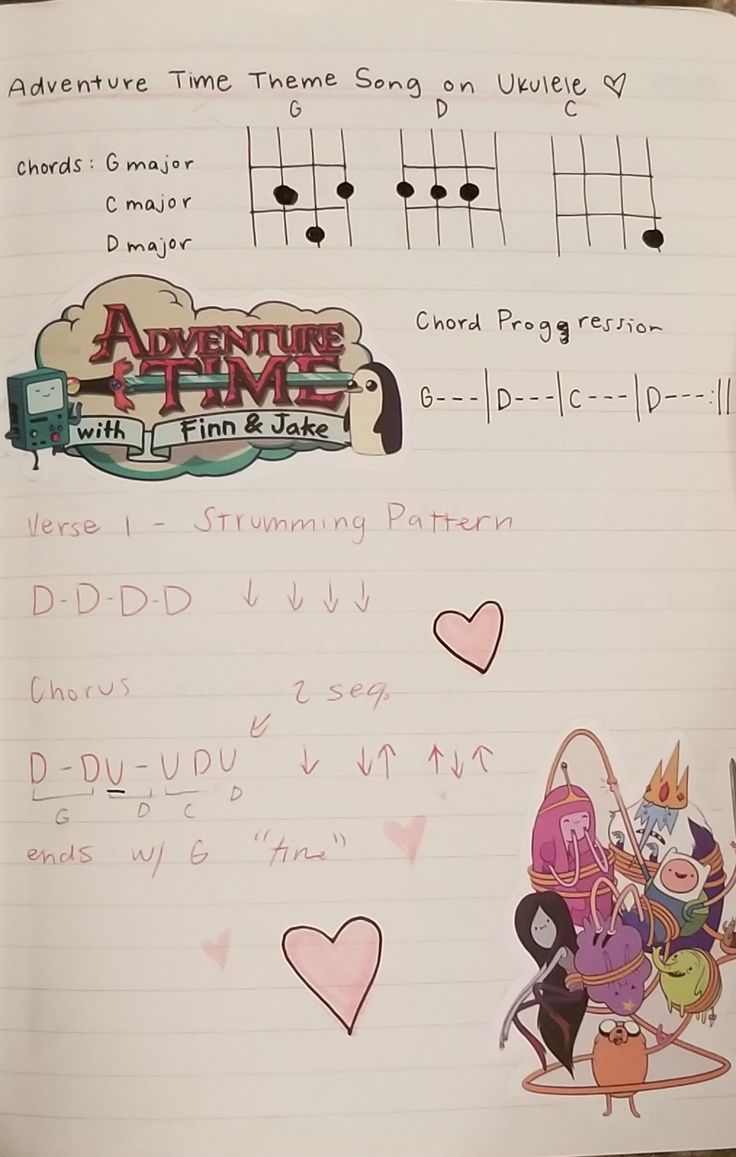 Adventure Time Theme Song on Ukulele ♡
G D C
Chords: G major
C major
D major
ADVENTURE
TIME
with Finn & Jake
Chord Proggression
G---|D---|C---|D---:||
Verse 1 - Strumming Pattern
D-D-D-D ↓ ↓ ↓ ↓
Chorus 2 seq.
D-DU-UDU ↓ ↓↑ ↑↓↑
G D C D
ends w/ G "time"